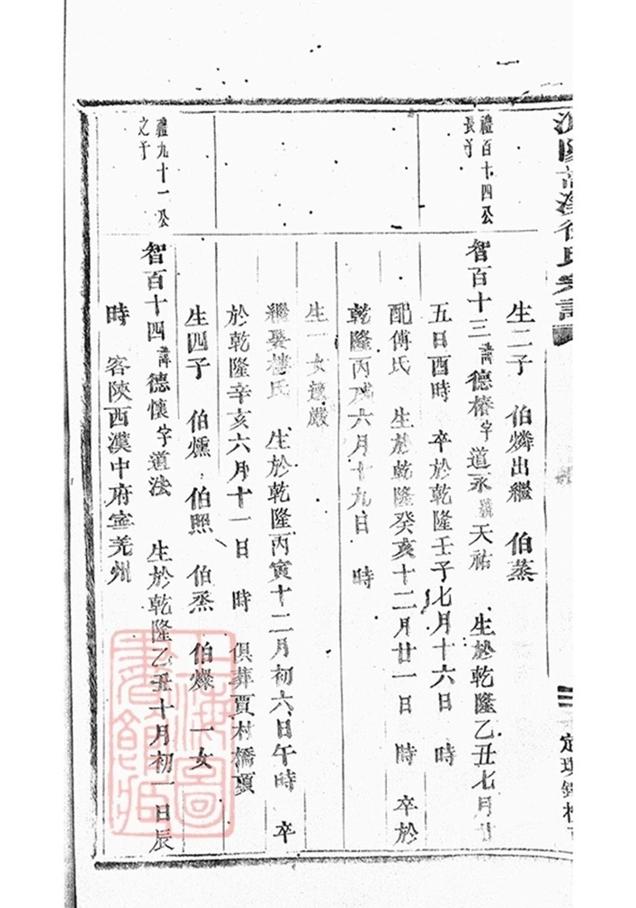 生二子 伯燐出繼 伯蒸
禮百十四公
長子
智百十三 諱德椿字道永號天祐 生於乾隆乙丑七月廿
五日酉時 卒於乾隆壬子七月十六日 時
配傅氏 生於乾隆癸亥十二月廿一日 時 卒於
乾隆丙戌六月十九日 時
生一女適嚴
繼娶樓氏 生於乾隆丙寅十二月初六日午時 卒
於乾隆辛亥六月十一日 時 俱葬賈村橋頭
生四子 伯燻 伯照 伯烝 伯燦 一女
禮九十一公
之子
智百十四 諱德懷字道法 生於乾隆乙丑十月初一日辰
時 客陝西漢中府寧羌州
上海圖書館藏